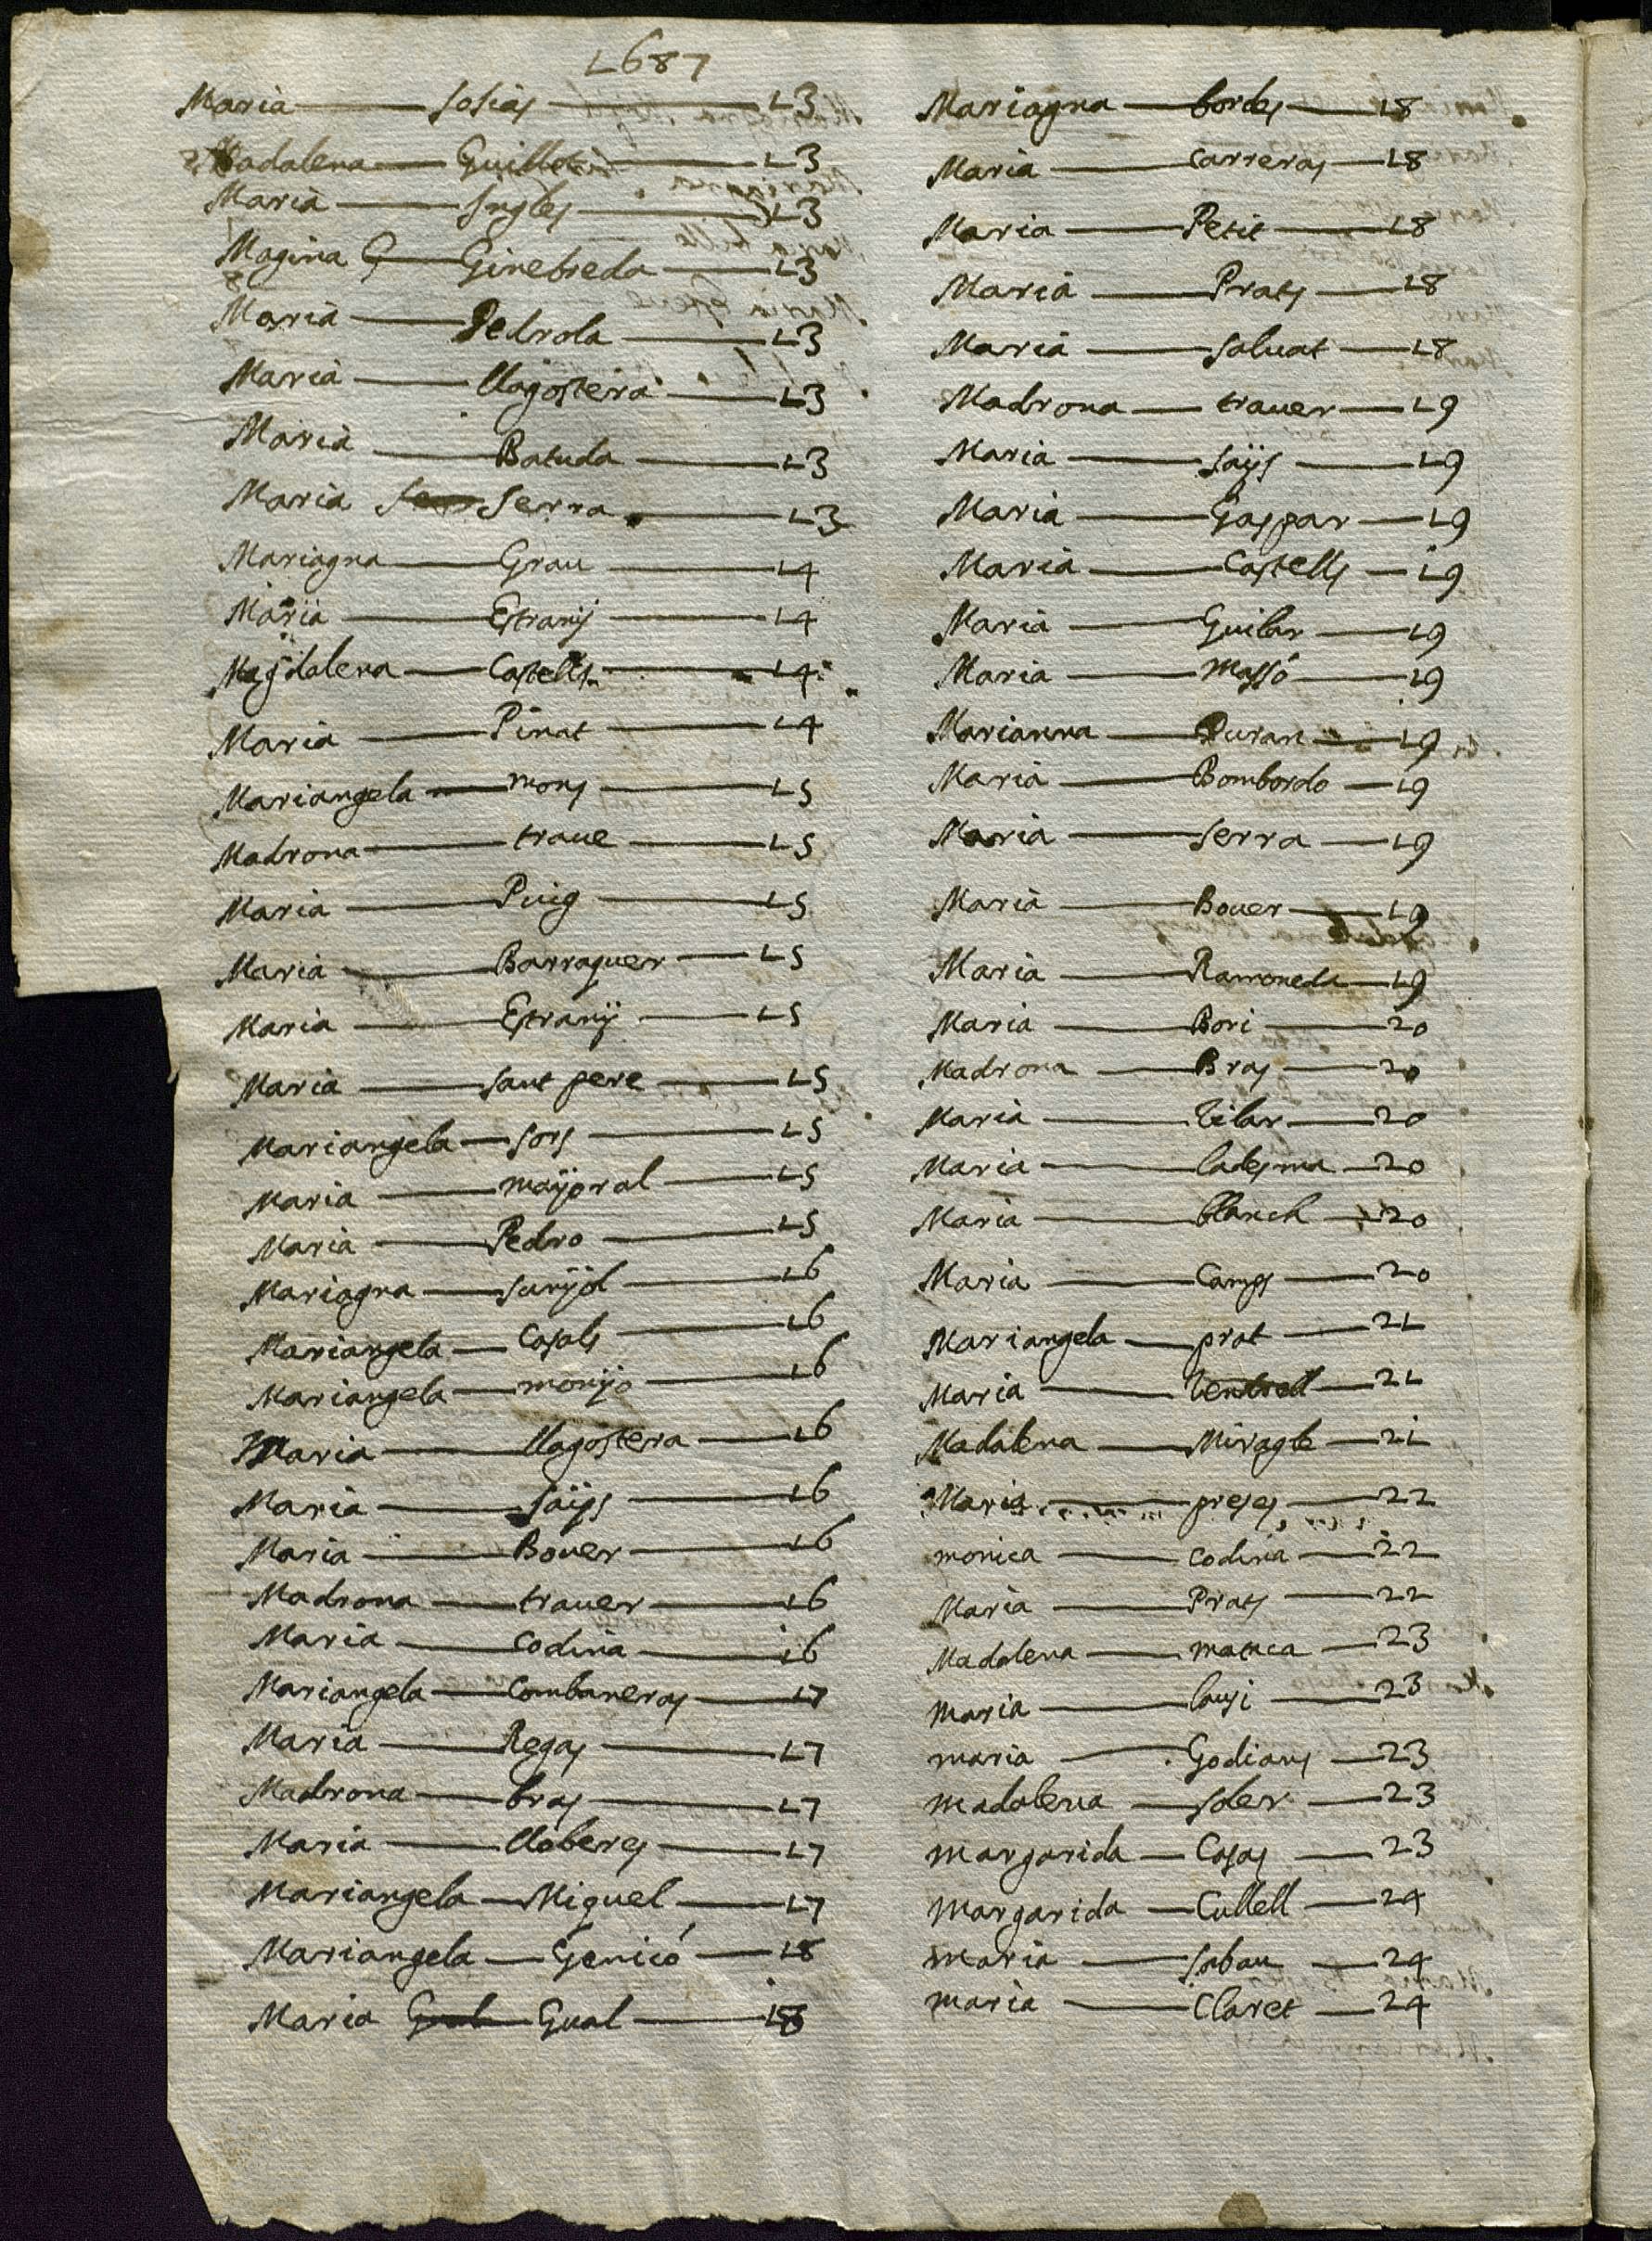 1687
Maria Sosias 13
Madalena Guillot 13
Maria Ingles 13
Magina G Ginebreda 13
Maria Pedrola 13
Maria llagostera 13
Maria Batuda 13
Maria Serra 13
Mariagna Grau 14
Maria Estrany 14
Magdalena Castells 14
Maria Pinat 14
Mariangela mons 15
Madrona traue 15
Maria Puig 15
Maria Barraquer 15
Maria Estrany 15
Maria sant pere 15
Mariangela sors 15
Maria mayoral 15
Maria Pedro 15
Mariagna sunyol 16
Mariangela Casals 16
Mariangela monyo 16
Maria llagostera 16
Maria saÿs 16
Maria Bouer 16
Madrona trauer 16
Maria Codina 16
Mariangela Combaneras 17
Maria Regas 17
Madrona bras 17
Maria lloberes 17
Mariangela Miquel 17
Mariangela Genicó 18
Maria Gual Gual 18
Mariagna bordes 18
Maria Carreras 18
Maria Petit 18
Maria Prats 18
Maria saluat 18
Madrona trauer 19
Maria saÿs 19
Maria Gaspar 19
Maria Castells 19
Maria Guilar 19
Maria Massó 19
Marianna Duran 19
Maria Bombardo 19
Maria Serra 19
Maria Bouer 19
Maria Ramoneda 19
Maria Bori 20
Madrona Bras 20
Maria Vilar 20
Maria ladesma 20
Maria blanch 20
Maria Camps 20
Mariangela prat 21
Maria Vendrell 21
Madalena Miragle 21
Maria preses 22
monica Codina 22
Maria Prats 22
Madalena mataca 23
Maria 23
maria Godians 23
madalena soler 23
Margarida Casas 23
Margarida Cullell 24
maria sabau 24
maria Claret 24